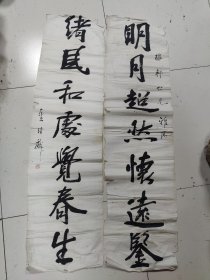 明月超然懷遠鑒
緒風和處覺春生